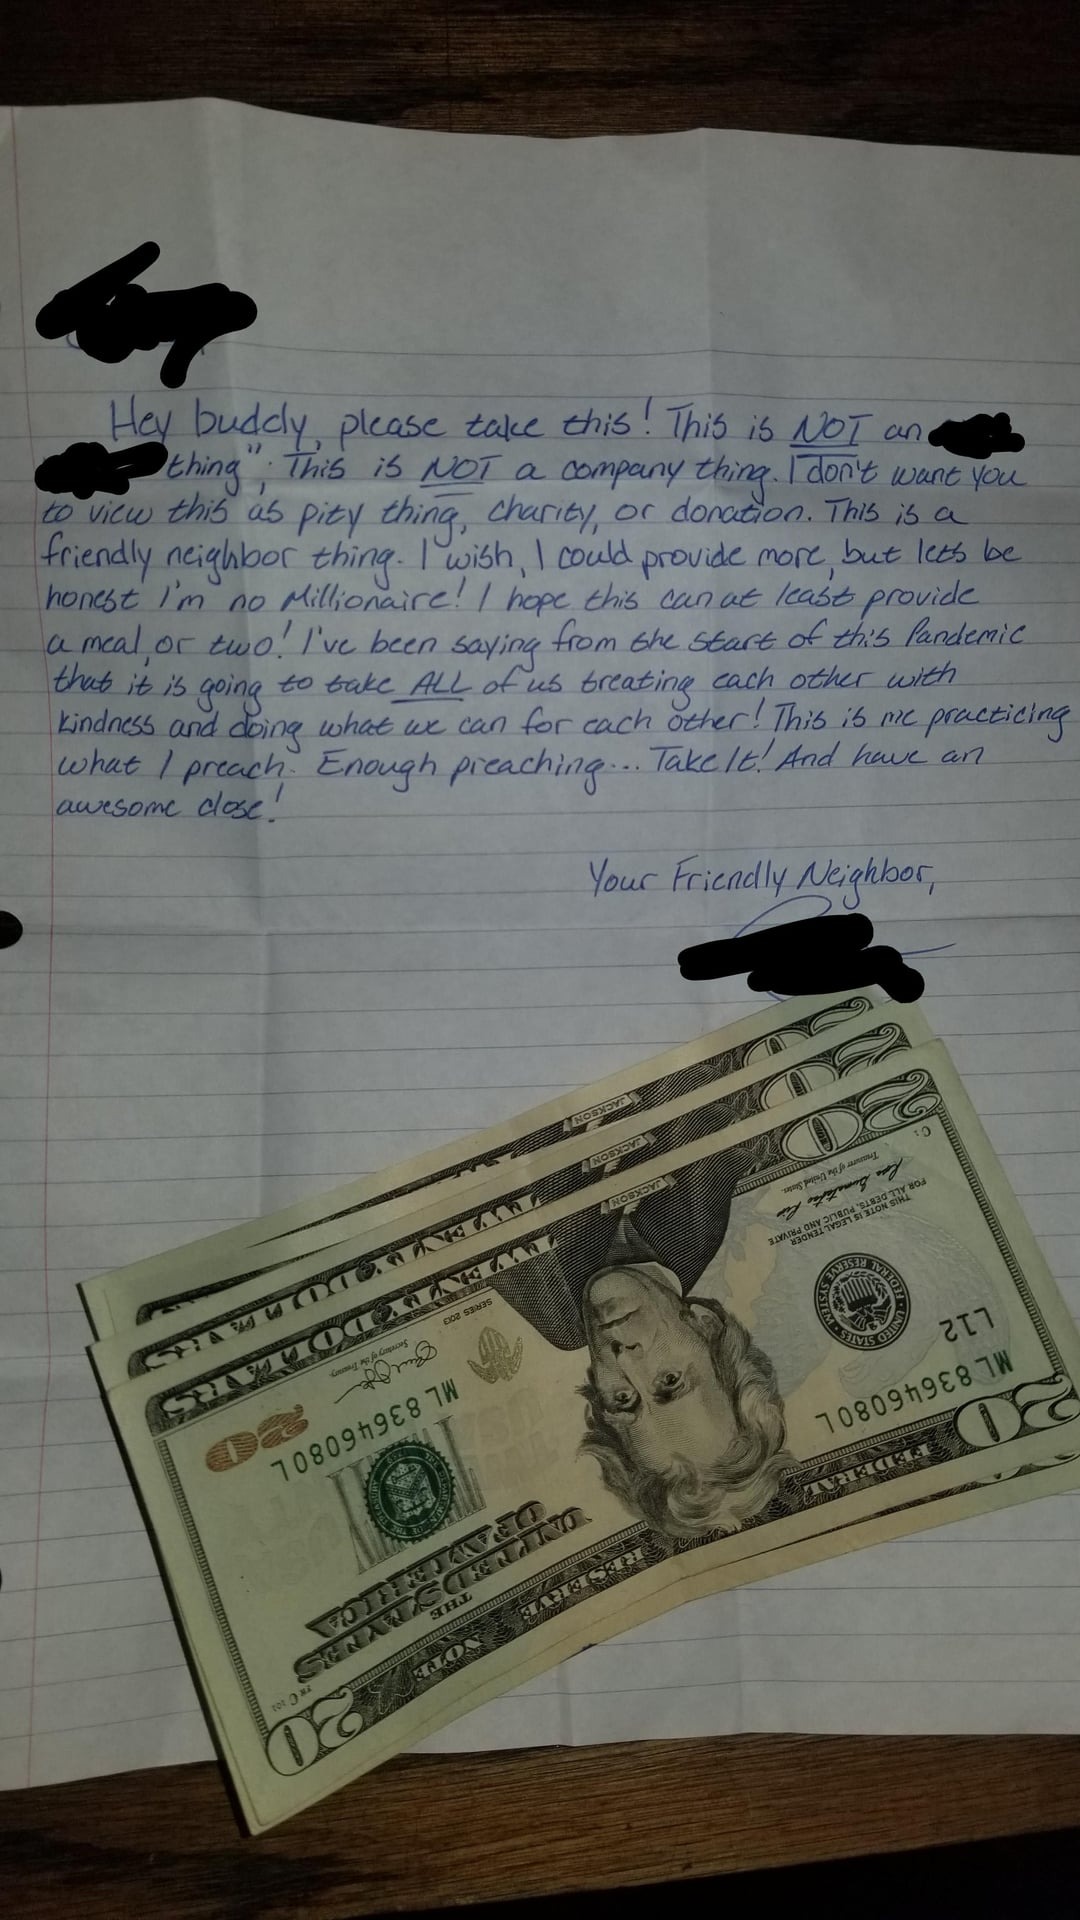 Hey buddy, please take this! This is NOT an
thing", This is NOT a company thing. I don't want you
to view this as pity thing, charity, or donation. This is a
friendly neighbor thing. I wish, I could provide more, but lets be
honest I'm no Millionaire! I hope this can at least provide
a meal, or two! I've been saying from the start of this Pandemic
that it is going to take ALL of us treating each other with
kindness and doing what we can for each other! This is me practicing
what I preach. Enough preaching... Take It! And have an
awesome close!
Your Friendly Neighbor,
20
JACKSON
20
JACKSON
TWENTY DOLLARS
20
JACKSON
TWENTY DOLLARS
20
FEDERAL RESERVE NOTE
THE
UNITED STATES
OF AMERICA
ML 83646080 L
L12
UNITED STATES FEDERAL RESERVE SYSTEM
THIS NOTE IS LEGAL TENDER
FOR ALL DEBTS, PUBLIC AND PRIVATE
Treasurer of the United States.
ML 83646080 L
20
Secretary of the Treasury.
SERIES 2013
20